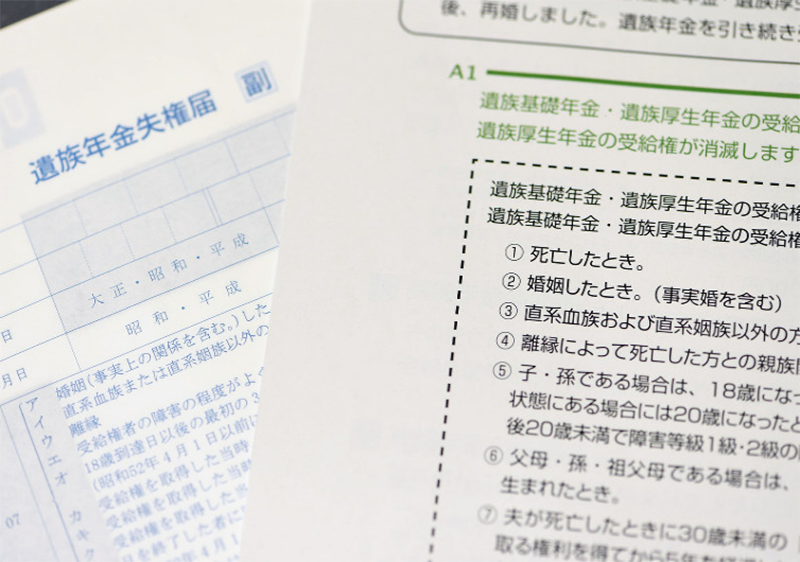 遺族年金失権届 副
大正・昭和・平成
昭和・平成
日
月日
婚姻（事実上の関係を含む。）した
直系血族または直系姻族以外の
離縁
受給権者の障害の程度がよ
18歳到達日以後の最初の3
（昭和52年4月1日以前に
受給権を取得した当時
受給権を取得した当時
受給権を取得した当時
日を終了した者に
ア
イ
ウ
エ
オ
カ
キ
ク
07
後、再婚しました。遺族年金を引き続き
A1
遺族基礎年金・遺族厚生年金の受給
遺族厚生年金の受給権が消滅します
遺族基礎年金・遺族厚生年金の受給権
遺族基礎年金・遺族厚生年金の受給権
① 死亡したとき。
② 婚姻したとき。（事実婚を含む）
③ 直系血族および直系姻族以外の方
④ 離縁によって死亡した方との親族
⑤ 子・孫である場合は、18歳になっ
状態にある場合には20歳になったと
後20歳未満で障害等級1級・2級の
⑥ 父母・孫・祖父母である場合は、
生まれたとき。
⑦ 夫が死亡したときに30歳未満の
取る権利を得てから5年を